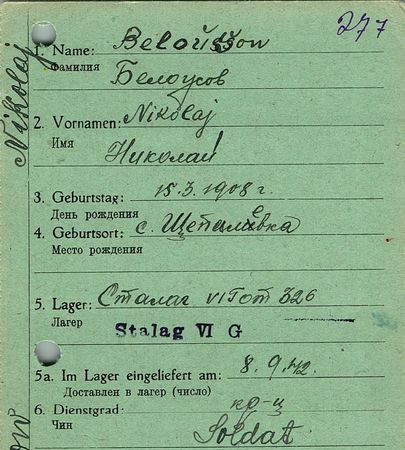 277
Nikolaj
1. Name: Beloússow
Фамилия Белоусов
2. Vornamen: Nikolaj
Имя Николай
3. Geburtstag: 15.3.1908 г.
День рождения
4. Geburtsort: с. Щепиловка
Место рождения
5. Lager: Сталаг VI от 326
Лагер
Stalag VI G
5a. Im Lager eingeliefert am: 8.9.42.
Доставлен в лагер (число)
6. Dienstgrad: кр-ц
Чин Soldat